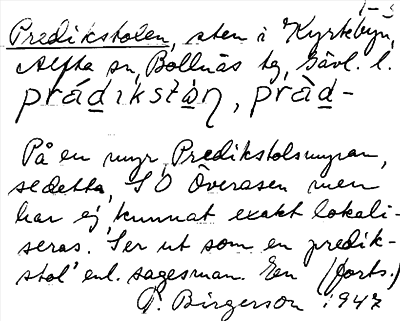 1-3
Predikstolen, sten i Kyrkbyn,
Alfta sn, Bollnäs tg, Gävl. l.
prádikstàn, pràd-
På en myr, Predikstolsmyran,
se detta, SO Överåsen men
har ej kunnat exakt lokali-
seras. Ser ut som en predik-
stol' enl. sagesman. Een (forts.)
P. Birgerson 1947